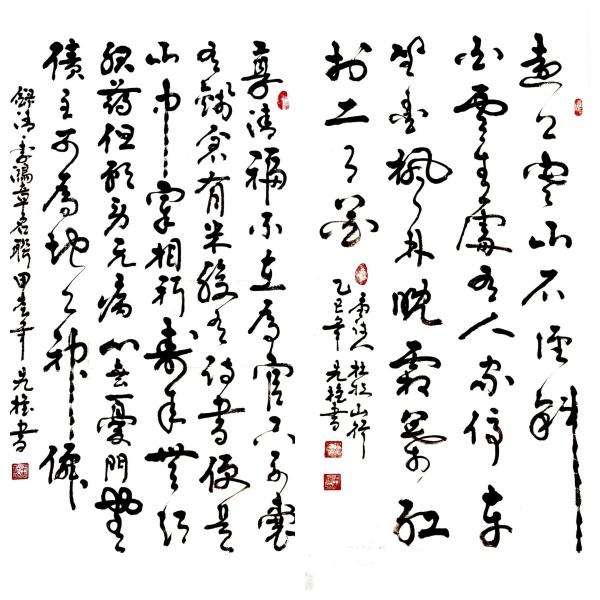 遠上寒山石徑斜
白雲生處有人家停車
坐愛楓林晚霜葉紅
於二月花
唐詩人杜牧山行
乙巳年書
享清福不在為官只要囊
有錢倉有米腹有詩書便是
山中宰相祈壽年無須
服药但願身无病心無憂門無
債主可為地上神仙
錄清李鴻章名聯年書